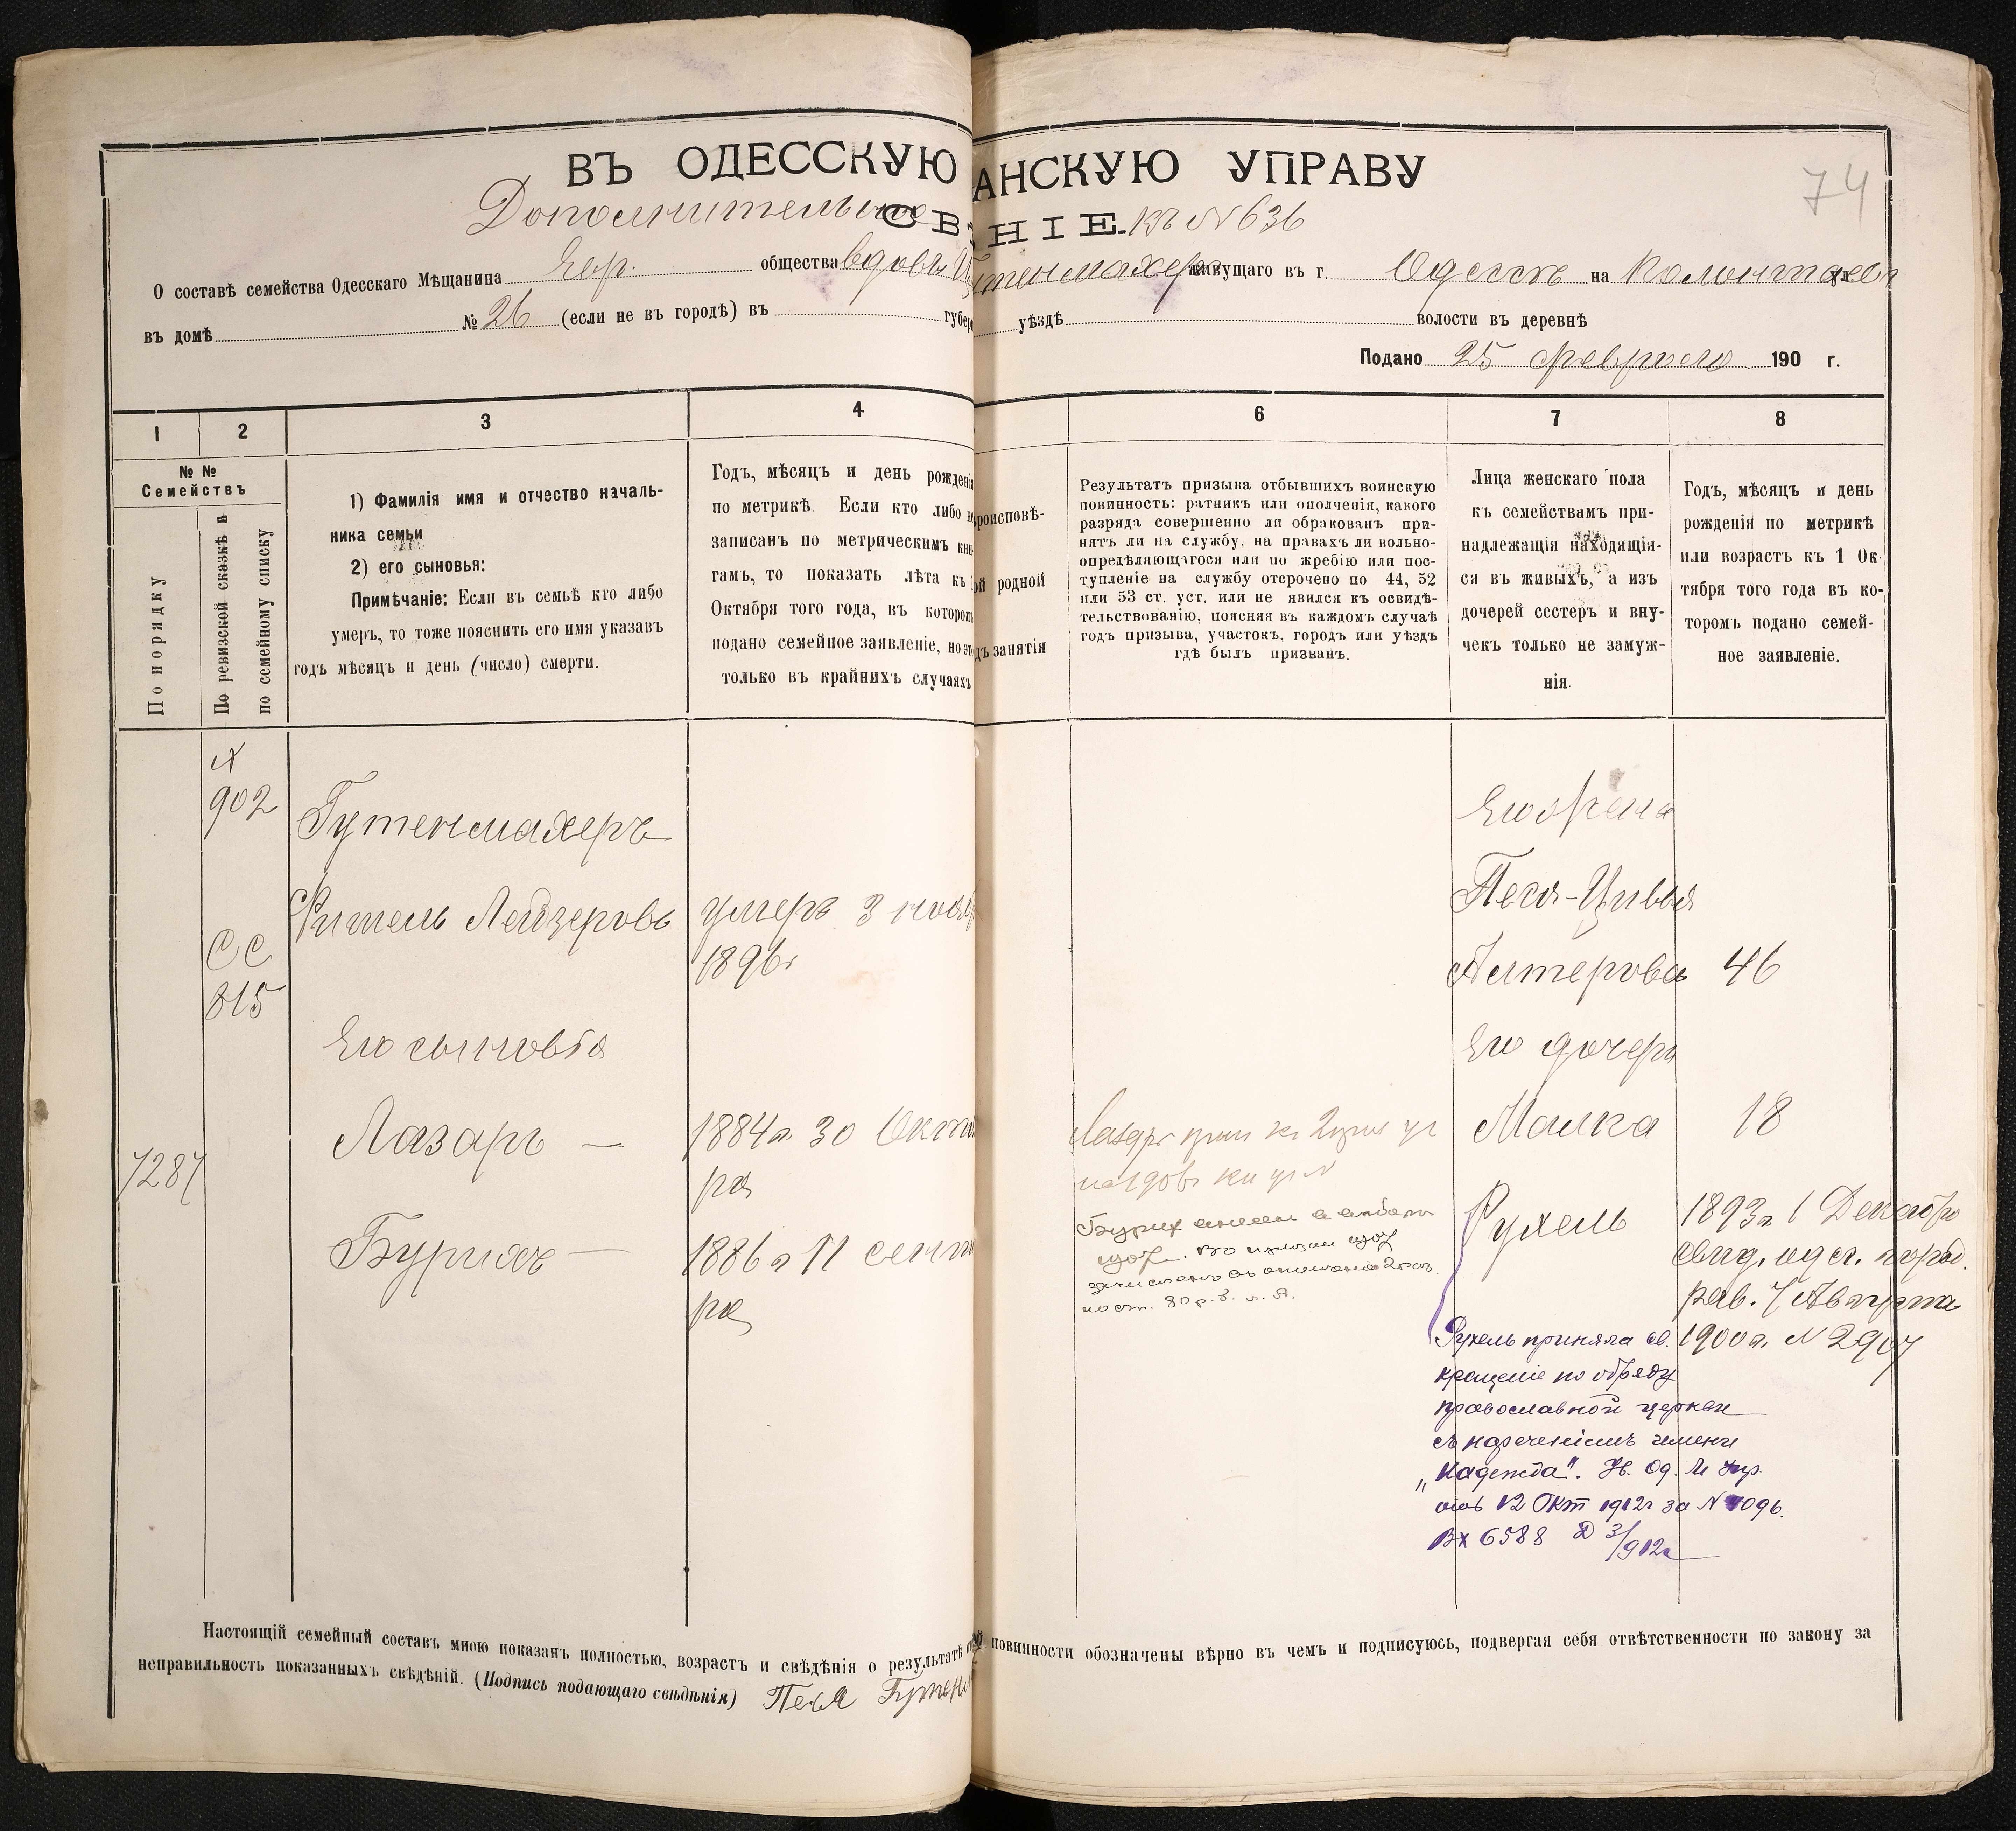 74
ВЪ ОДЕССКУЮ АНСКУЮ УПРАВУ
Дополнительное СВ НІЕ. къ № 636
О составѣ семейства Одесскаго Мѣщанина Евр. общества вдовы тенмахеръ живущаго въ г. Одессѣ на
въ домѣ № 26 (если не въ городѣ) въ губер уѣздѣ волости въ деревнѣ
Подано 25 февраля 190 г.
1 2 3 4 6 7 8
№ №
Семействъ
По порядку
По ревизской сказкѣ и
по семейному списку
1) Фамилія имя и отчество началь-
ника семьи
2) его сыновья:
Примѣчаніе: Если въ семьѣ кто либо
умеръ, то тоже пояснить его имя указавъ
годъ мѣсяцъ и день (число) смерти.
Годъ, мѣсяцъ и день рожденія
по метрикѣ. Если кто либо не
записанъ по метрическимъ кни-
гамъ, то показать лѣта къ 1
Октября того года, въ которомъ
подано семейное заявленіе, но это
только въ крайнихъ случаяхъ
роисповѣ-
ой родной
дъ занятія
Результатъ призыва отбывшихъ воинскую
повинность: ратникъ или ополченія, какого
разряда совершенно ли обракованъ при-
нятъ ли на службу, на правахъ ли вольно-
опредѣляющагося или по жребію или пос-
тупленіе на службу отсрочено по 44, 52
или 53 ст. уст. или не явился къ освидѣ-
тельствованію, поясняя въ каждомъ случаѣ
годъ призыва, участокъ, городъ или уѣздъ
гдѣ былъ призванъ.
Лица женскаго пола
къ семействамъ при-
надлежащія находящія-
ся въ живыхъ, а изъ
дочерей сестеръ и вну-
чекъ только не замуж-
нія.
Годъ, мѣсяцъ и день
рожденія по метрикѣ
или возрастъ къ 1 Ок-
тября того года въ ко-
торомъ подано семей-
ное заявленіе.
902
Гутенмахеръ
Фишель Лейзеровъ
умеръ 3 нояб
1896г
СС
815
Его сыновья
Лазарь —
1884 г. 30 Октяб
ря
7287
Бурихъ —
1886 г 11 сентяб
ря
Лазарь
Бурихъ
Его жена
Песя-Цивья
Алтерова 46
Его дочери
Малка 18
Рухель
1893 г. 1 Декабря
свид. одес. город.
рав. 7 Августа
1900 г. № 2907
Рухель приняла св.
крещеніе по обряду
православной церкви
съ нареченіемъ имени
„Надежда". Ув. Од. М Упр.
отъ 12 Окт 1912г за №
Вх 6588 Д 3/912г
Настоящій семейный составъ мною показанъ полностью, возрастъ и свѣдѣнія о результатѣ повинности обозначены вѣрно въ чемъ и подписуюсь, подвергая себя отвѣтственности по закону за
неправильность показанныхъ свѣдѣній. (Подпись подающаго свѣдѣнія) Песя Гутенм